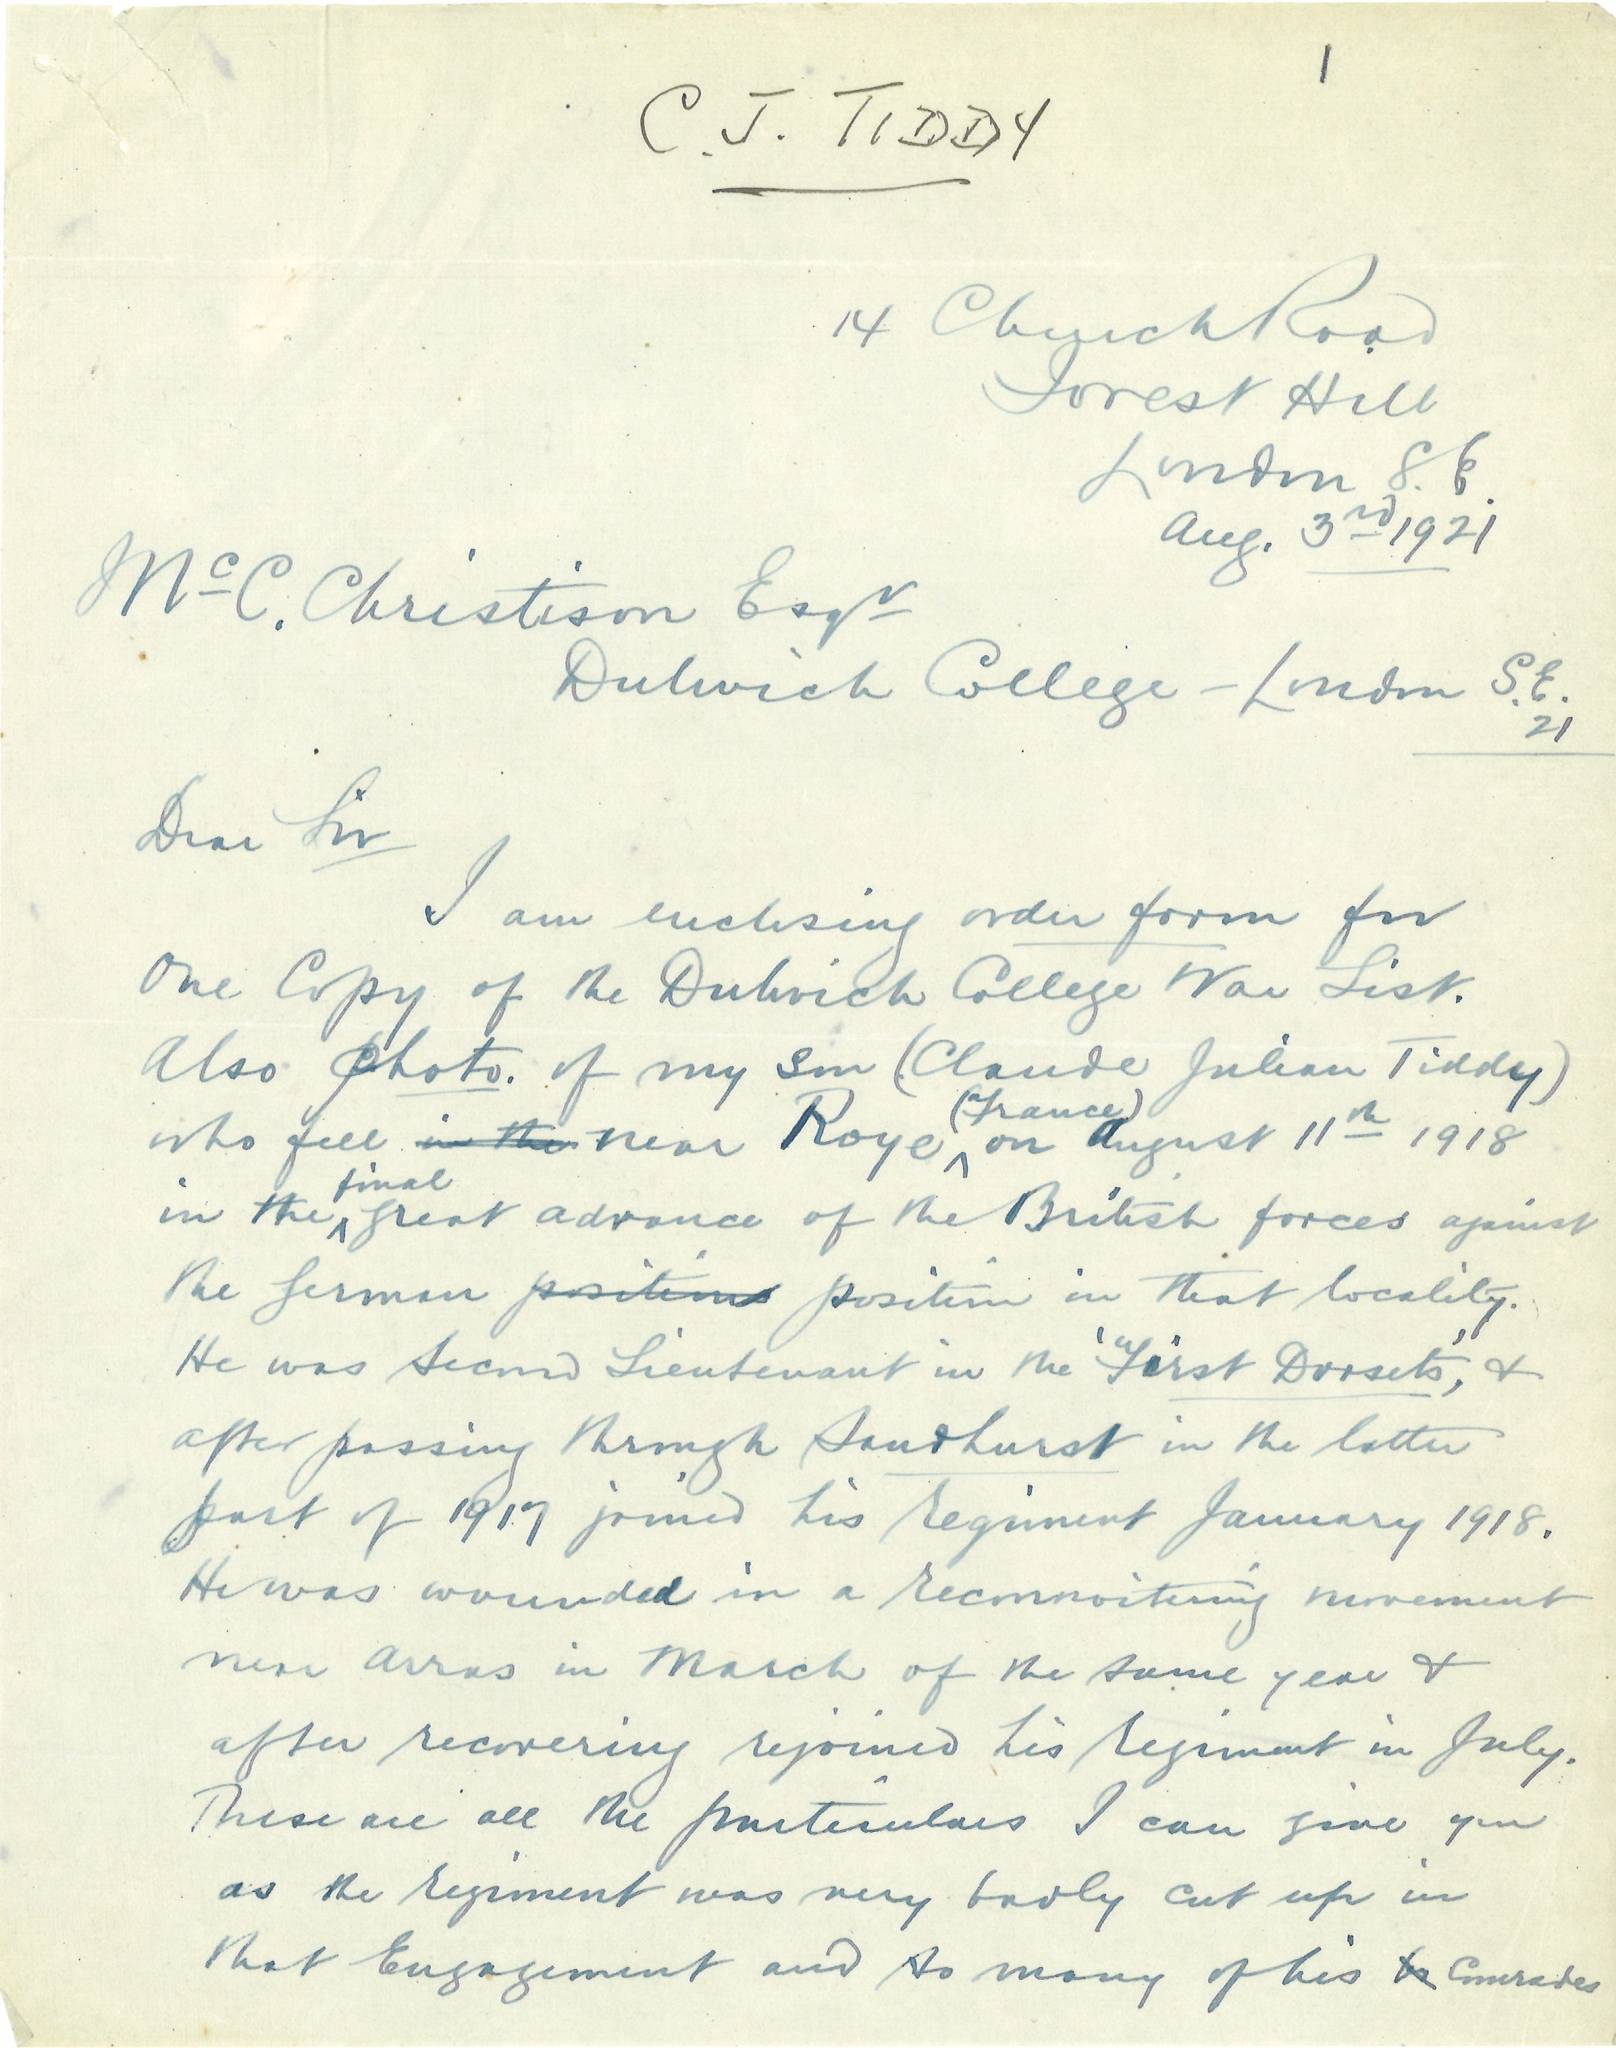 1
C. J. TIDDY
14 Church Road
Forest Hill
London S.E.
Aug. 3rd 1921
McC. Christison Esqr
Dulwich College - London S.E.
21
Dear Sir
I am enclosing order form for
One Copy of the Dulwich College War List.
Also photo. of my son (Claude Julian Tiddy)
who fell in the near Roye (France) on August 11th 1918
in the final great advance of the British forces against
the German positions position in that locality.
He was Second Lieutenant in the "First Dorsets", &
after passing through Sandhurst in the latter
part of 1917 joined his regiment January 1918.
He was wounded in a reconnoitering movement
near Arras in March of the same year &
after recovering rejoined his regiment in July.
These are all the particulars I can give you
as the regiment was very badly cut up in
that Engagement and so many of his Comrades